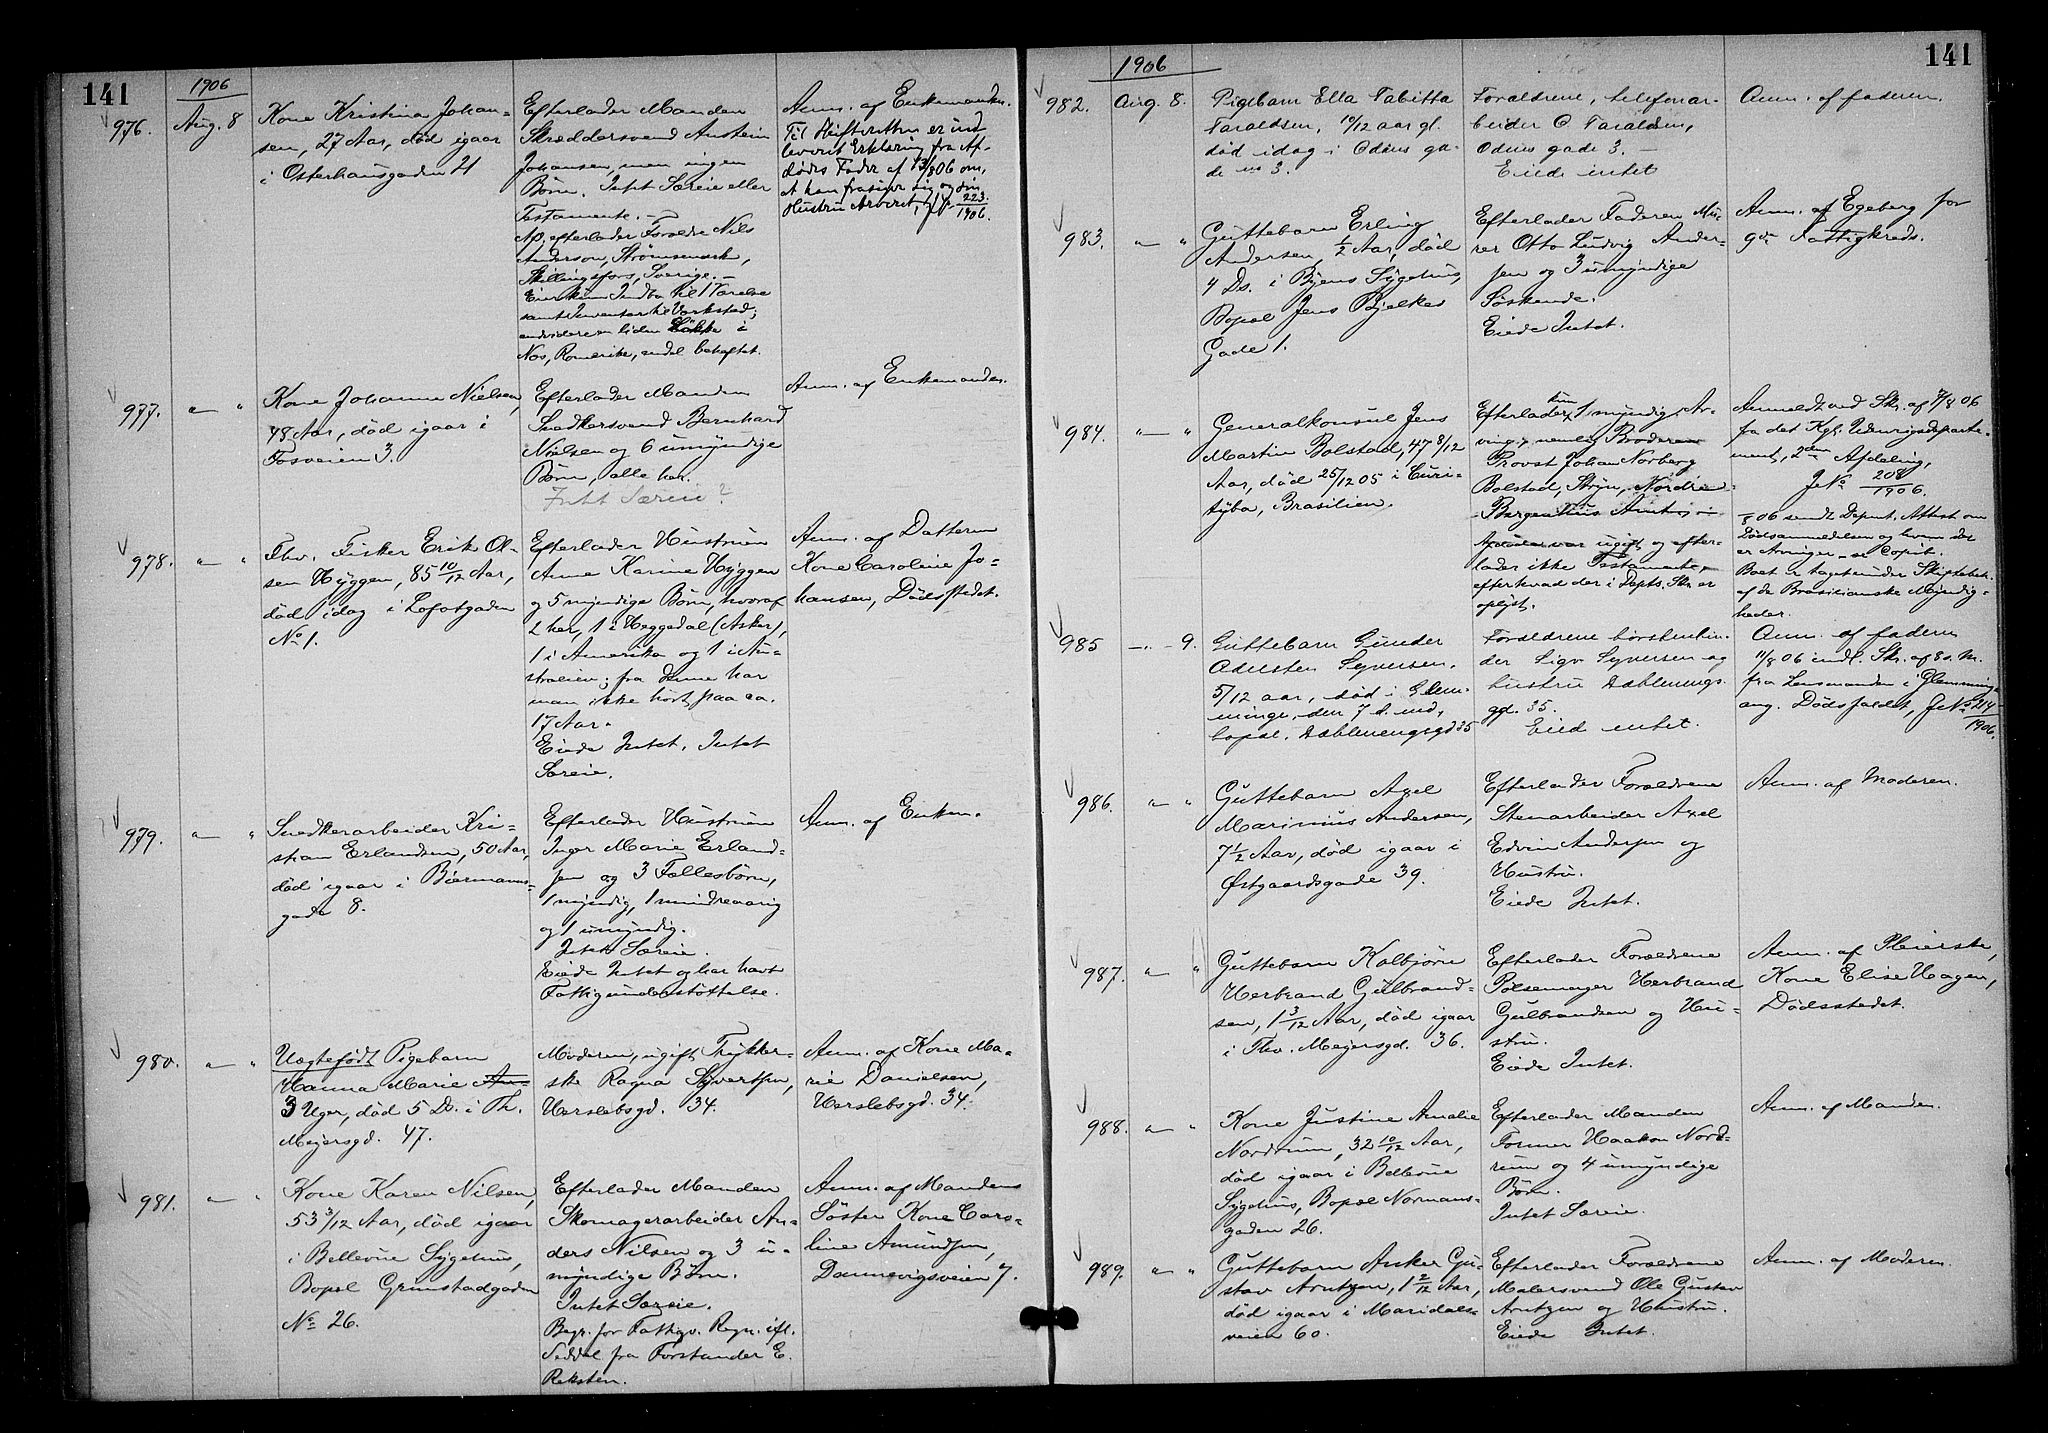 141
1906
976. Aug. 8
Kone Kristina Johan-
sen, 27 Aar, død igaar
i Osterhausgaden 21
Efterlader Manden
Skræddersvend Anstein
Johansen, men ingen
Børn. Intet Særeie eller
Testamente. –
Afd. efterlader Forældre Nils
Anderson, Strømsmark,
Skillingsfors, Sverige. –
Indbo til 1 Værelse
samt Inventar til Verkstad;
endvidere en liden Løkke i
Nes, Romerike, endel beheftet.
Anm. af Enkemanden.
Til Skifteretten er ind
leveret Erklæring fra Af-
dødes Fader af 13/8 06 om,
at han frasiger sig og sin
Hustru Arveret, J. No 223/1906.
977. " "
Kone Johanne Nielsen,
48 Aar, død igaar i
Fosveien 3.
Efterlader Manden
Snedkersvend Bernhard
Nielsen og 6 umyndige
Børn, alle her.
Intet Særeie?
Anm. af Enkemanden.
978. " "
Fhv. Fisker Erik Ol-
sen Hyggen, 85 10/12 Aar,
død idag i Lofotgaden
No 1.
Efterlader Hustruen
Anne Karine Hyggen
og 5 myndige Børn, hvoraf
2 her, 1 i Heggedal (Asker),
1 i Amerika og 1 i Au-
stralien; fra denne har
man ikke hørt paa ca.
17 Aar.
Eiede Intet. Intet
Særeie.
Anm. af Datteren
Kone Caroline Jo-
hansen, Dødsstedet.
979. " "
Snedkerarbeider Kri-
stian Erlandsen, 50 Aar,
død igaar i Biermanns-
gade 8.
Efterlader Hustruen
Inger Marie Erland-
sen og 3 Fællesbørn,
1 myndig, 1 mindreaarig
og 1 umyndig.
Intet Særeie.
Eiede Intet og har havt
Fattigunderstøttelse.
Anm. af Enken.
980. " "
Uægtefødt Pigebarn
Hanna Marie An-
3 Uger, død 5 Ds. i Th.
Meyersgd. 47.
Moderen, ugift Trykker-
ske Ragna Syvertsen,
Herslebsgd. 34.
Anm. af Kone Ma-
rie Danielsen,
Herslebsgd. 34.
981. " "
Kone Karen Nilsen,
53 3/12 Aar, død igaar
i Bellevue Sygehus,
Bopæl Grimstadgaden
No 26.
Efterlader Manden
Skomagerarbeider An-
ders Nilsen og 3 u-
myndige Børn.
Intet Særeie.
Begr. for Fattigv. Regn. ifl.
Seddel fra Forstander E.
Reksten.
Anm. af Mandens
Søster Kone Caro-
line Amundsen,
Dannevigsveien 7.
141
1906
982. Aug. 8.
Pigebarn Ella Tabitta
Taraldsen, 10/12 aar gl.
død idag i Odins ga-
de no 3.
Forældrene, telefonar-
beider O Taraldsen,
Odins gade 3. –
Eiede intet
Anm. af faderen.
983. " "
Guttebarn Erling
Andersen, 1/2 Aar, død
4 Ds. i Byens Sygehus,
Bopæl Jens Bjelkes
Gade 1.
Efterlader Faderen Mu-
rer Otto Ludvig Ander-
sen og 3 umyndige
Søskende.
Eiede Intet.
Anm. af Egeberg for
9de Fattigkreds.
984. " "
Generalkonsul Jens
Martin Bolstad, 47 8/12
Aar, død 25/12 05 i Curi-
tyba, Brasilien.
Efterlader kun 1 myndig Ar-
ving, nemlig Broderen
Provst Johan Norberg
Bolstad, Stryn, Nordre
Bergenhus Amt,
Afdøde var ugift og efter-
lader ikke Testament,
efter hvad der i Depts. Skr er
oplyst.
Anmeldt ved Skr. af 7/8 06
fra det Kgl. Udenrigsdeparte-
ment, 2den Afdeling,
J No 208/1906.
/8 06 sendt Depart. Attest om
Dødsanmeldelsen og hvem der
er Arvinger – se Copib.
Boet er taget under Skiftebeh.
af de Brasilianske Myndig-
heder.
985 " 9.
Guttebarn Gunder
Adelsten Syversen.
5/12 aar, død i Glem-
minge, den 7 d. md,
bopæl. Dæblenengsgd 35
Forældrene børstenbin-
der Sigv Syversen og
hustru Dæblenengs-
gd. 35.
Eied intet.
Anm. af faderen
11/8 06 indl. Skr. af 8 s. M.
fra Lensmanden i Glemminge
ang. Dødsfaldet, J No 214/1906.
986. " "
Guttebarn Axel
Marinius Andersen,
7 1/2 Aar, død igaar i
Østgaardsgade 39.
Efterlader Forældrene
Stenarbeider Axel
Edvin Andersen og
Hustru.
Eiede Intet.
Anm. af Moderen.
987. " "
Guttebarn Kolbjørn
Herbrand Gulbrand-
sen, 1 3/12 Aar, død igaar
i Thv. Meyersgd. 36.
Efterlader Forældrene
Pølsemager Herbrand
Gulbrandsen og Hu-
stru.
Eiede Intet.
Anm. af Pleierske,
Kone Elise Haagen,
Dødsstedet.
988. " "
Kone Justine Amalie
Nordrum, 32 10/12 Aar,
død igaar i Bellevue
Sygehus, Bopæl Normans-
gaden 26.
Efterlader Manden
Former Haakon Nord-
rum og 4 umyndige
Børn.
Intet Særeie.
Anm. af Manden.
989. " "
Guttebarn Anker Gu-
stav Arntzen, 1 2/12 Aar,
død igaar i Maridals-
veien 60.
Efterlader Forældrene
Malersvend Ole Gustav
Arntzen og Hustru.
Eiede Intet.
Anm. af Moderen.